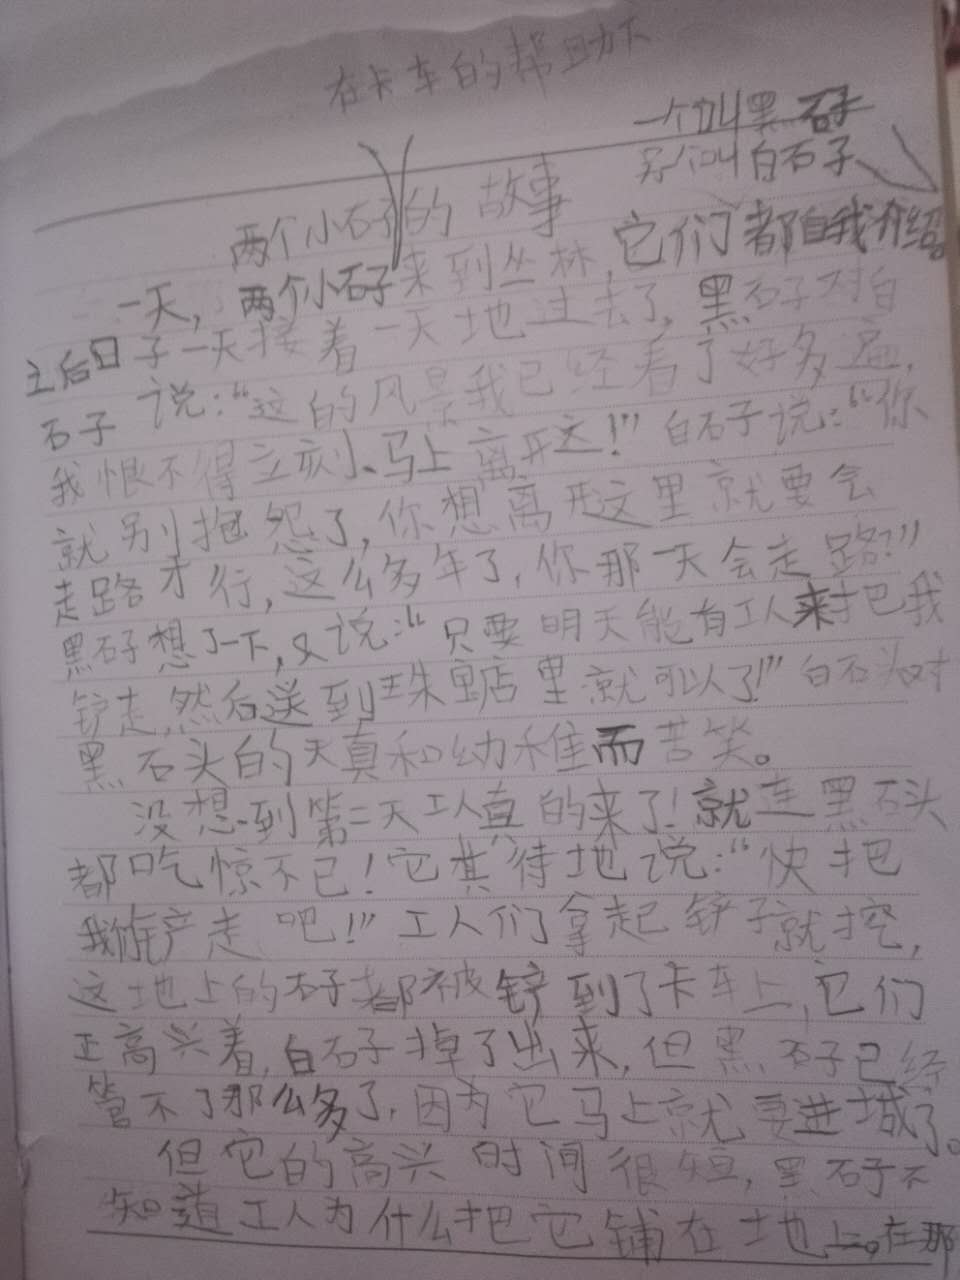 在卡车的帮助下
一个叫黑石子
另个叫白石子
两个小石子的故事
一天，两个小石子来到丛林，它们都自我介绍。
之后日子一天接着一天地过去了，黑石子对白
石子说：“这的风景我已经看了好多遍，
我恨不得立刻、马上离开这！”白石子说：“你
就别抱怨了，你想离开这里就要会
走路才行，这么多年了，你那一天会走路？”
黑石子想了一下，又说：“只要明天能有工人来把我
铲走，然后送到珠宝店里就可以了！”白石头对
黑石头的天真和幼稚而苦笑。
没想到第二天工人真的来了！就连黑石头
都吃惊不已！它其待地说：“快把
我铲走吧！”工人们拿起铲子就挖，
这地上的石子都被铲到了卡车上，它们
正高兴着，白石子掉了出来，但黑石子已经
管不了那么多了，因为它马上就要进城了。
但它的高兴时间很短，黑石子不
知道工人为什么把它铺在地上。在那